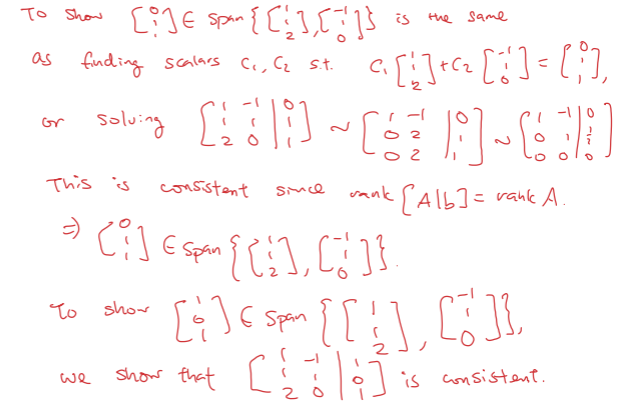 To show [0; 1; 1] ∈ span {[1; 1; 2], [-1; 1; 0]} is the same
as finding scalars c₁, c₂ s.t. c₁ [1; 1; 2] + c₂ [-1; 1; 0] = [0; 1; 1],
or solving [1 -1 | 0; 1 1 | 1; 2 0 | 1] ~ [1 -1 | 0; 0 2 | 1; 0 2 | 1] ~ [1 -1 | 0; 0 1 | 1/2; 0 0 | 0]
This is consistent since rank [A|b] = rank A.
⇒ [0; 1; 1] ∈ span {[1; 1; 2], [-1; 1; 0]}.
To show [1; 0; 1] ∈ span {[1; 1; 2], [-1; 1; 0]},
we show that [1 -1 | 1; 1 1 | 0; 2 0 | 1] is consistent.